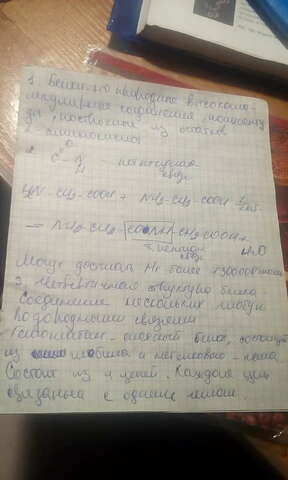 1. Белки это природные высокомо-
лекулярные соединения, 
состоящие из остатков
2-аминокислот
2. O
C - N - пептидная
H связь
H₂N-CH₂-COOH + NH₂-CH₂-COOH
= NH₂-CH₂- CONH -CH₂-COOH +
H₂O
пептидная
связь
Могут достигать Mr более
3. Четвертичная структура белка
Соединение нескольких глобул
водородными связями
Гемоглобин - сложный белок, состоящий
из глобина и небелковой - гема
Состоит из 4 цепей. Каждая цепь
связана с одним гемом.